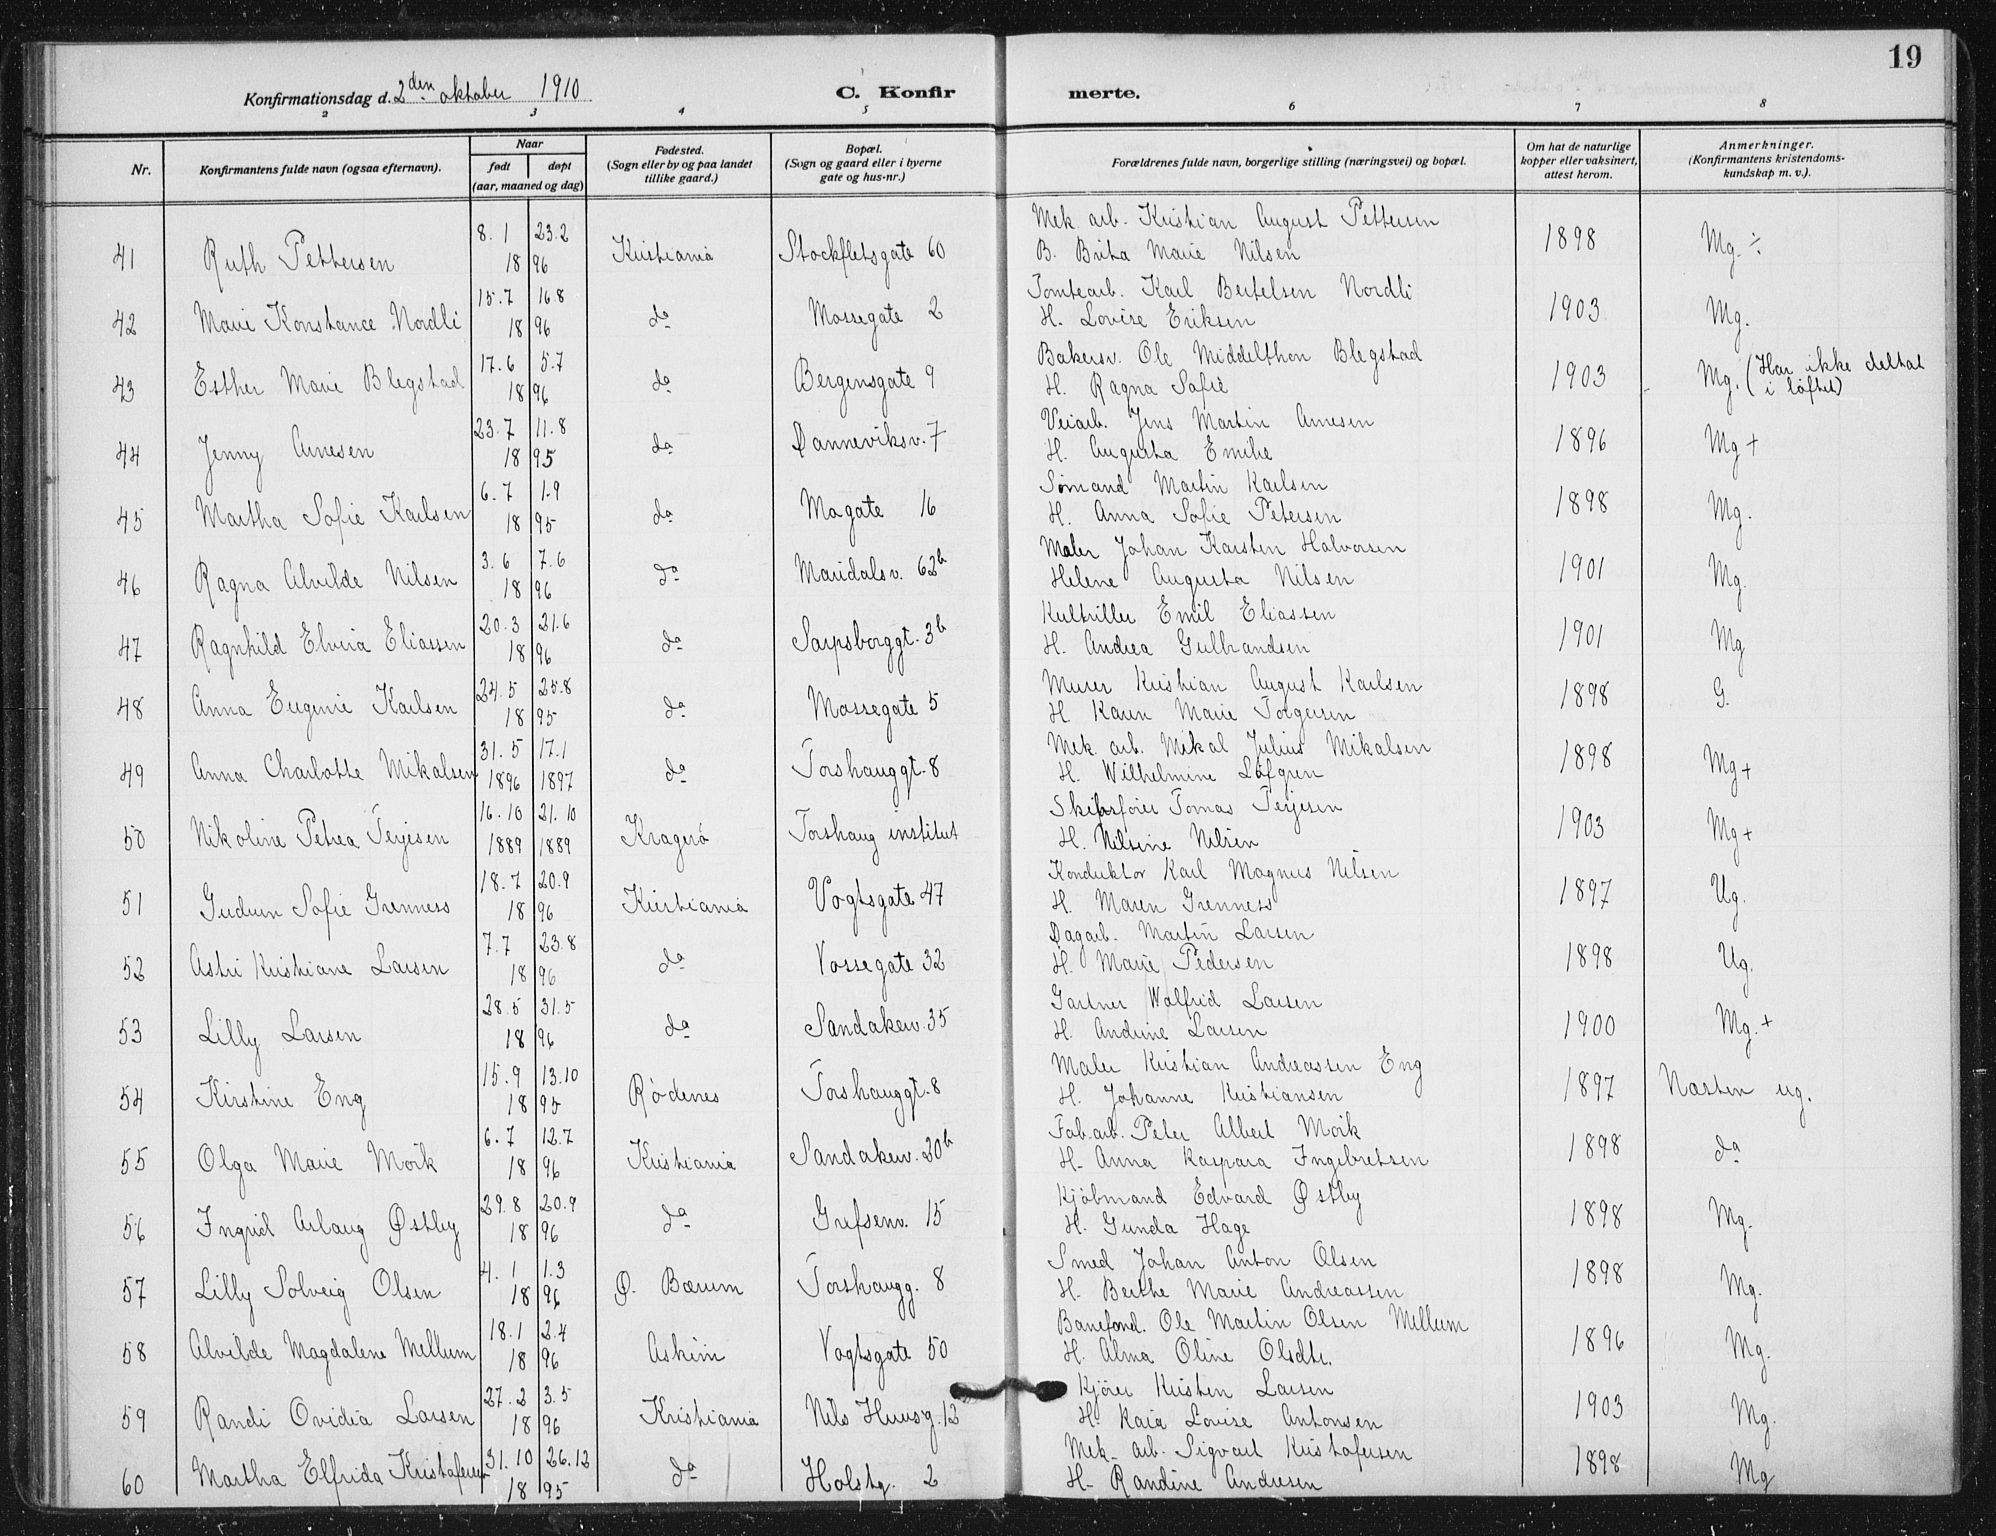 19
Konfirmationsdag d. 2den oktober 1910 C. Konfirmerte.
2 3 4 5 6 7 8
Nr. Konfirmantens fulde navn (ogsaa efternavn). Naar født døpt (aar, maaned og dag) Fødested. (Sogn eller by og paa landet tillike gaard.) Bopæl. (Sogn og gaard eller i byerne gate og hus-nr.) Forældrenes fulde navn, borgerlige stilling (næringsvei) og bopæl. Om hat de naturlige kopper eller vaksinert, attest herom. Anmerkninger. (Konfirmantens kristendoms-kundskap m. v.).
41 Ruth Pettersen 8.1 23.2 1896 Kristiania Stockfletsgate 60 Mek. arb. Kristian August Pettersen B. Brita Marie Nilsen 1898 Mg. ÷
42 Marie Konstance Nordli 15.7 16.8 1896 do Mossegate 2 Tomtearb. Karl Bertelsen Nordli H. Lovise Eriksen 1903 Mg.
43 Esther Marie Blegstad 17.6 5.7 1896 do Bergensgate 9 Bakersv. Ole Middelthon Blegstad H. Ragna Sofie 1903 Mg. (Har ikke deltat i løftet)
44 Jenny Arnesen 23.7 11.8 1895 do Danneviksv. 7 Veiarb. Jens Martin Arnesen H. Augusta Emilie 1896 Mg +
45 Martha Sofie Karlsen 6.7 1.9 1895 do Mogate 16 Sømand Martin Karlsen H. Anna Sofie Petersen 1898 Mg.
46 Ragna Alvilde Nilsen 3.6 7.6 1896 do Maridalsv. 62b Maler Johan Karsten Halvorsen Helene Augusta Nilsen 1901 Mg.
47 Ragnhild Elvira Eliassen 20.3 21.6 1896 do Sarpsborggt. 3b Emil Eliassen H. Andrea Gulbrandsen 1901 Mg
48 Anna Eugenie Karlsen 24.5 25.8 1895 do Mossegate 5 Murer Kristian August Karlsen H Karen Marie Torgersen 1898 G.
49 Anna Charlotte Mikalsen 31.5 17.1 1896 1897 do Torshauggt. 8 Mek. arb. Mikal Julius Mikalsen H. Wilhelmine Löfgren 1898 Mg +
50 Nikoline Petrea Terjesen 16.10 21.10 1889 1889 Kragerö Torshaug institut Skibsfører Tomas Terjesen H. Nilsine Nilsen 1903 Mg +
51 Gudrun Sofie Grenness 18.7 20.9 1896 Kristiania Vogtsgate 47 Konduktor Karl Magnus Nilsen H. Maren Grenness 1897 Ug.
52 Astri Kristiane Larsen 7.7 23.8 1896 do Vossegate 32 Dagarb. Martin Larsen H. Marie Pedersen 1898 Ug.
53 Lilly Larsen 28.5 31.5 1896 do Sandakerv. 35 Gartner Walfrid Larsen H. Andrine Larsen 1900 Mg. +
54 Kirstine Eng 15.9 13.10 1895 Rödenes Torshauggt. 8 Maler Kristian Andreassen Eng H. Johanne Kristiansen 1897 Næsten ug.
55 Olga Marie Mörk 6.7 12.7 1896 Kristiania Sandakerv. 20b Fab. arb. Peter Albert Mörk H. Anna Kaspara Ingebretsen 1898 do
56 Ingrid Aslaug Østby 29.8 20.9 1896 do Grefsenv. 15 Kjöbmand Edvard Østby H. Gunda Hage 1898 Mg.
57 Lilly Solveig Olsen 4.1 1.3 1896 Ø. Bærum Torshaugg. 8 Smed Johan Anton Olsen H. Berthe Marie Andreassen 1898 Mg.
58 Alvilde Magdalene Mellum 18.1 2.4 1896 Askim Vogtsgate 50 Ole Martin Olsen Mellum H. Alma Oline Olsdtr. 1896 Mg.
59 Randi Ovidia Larsen 27.2 3.5 1896 Kristiania Nils Huusg. 12 Kjörer Kristen Larsen H. Kaia Lovise Antonsen 1903 Mg.
60 Martha Elfrida Kristofersen 31.10 26.12 1895 do Holstg. 2 Mek. arb. Sigvart Kristofersen H. Randine Andresen 1898 Mg